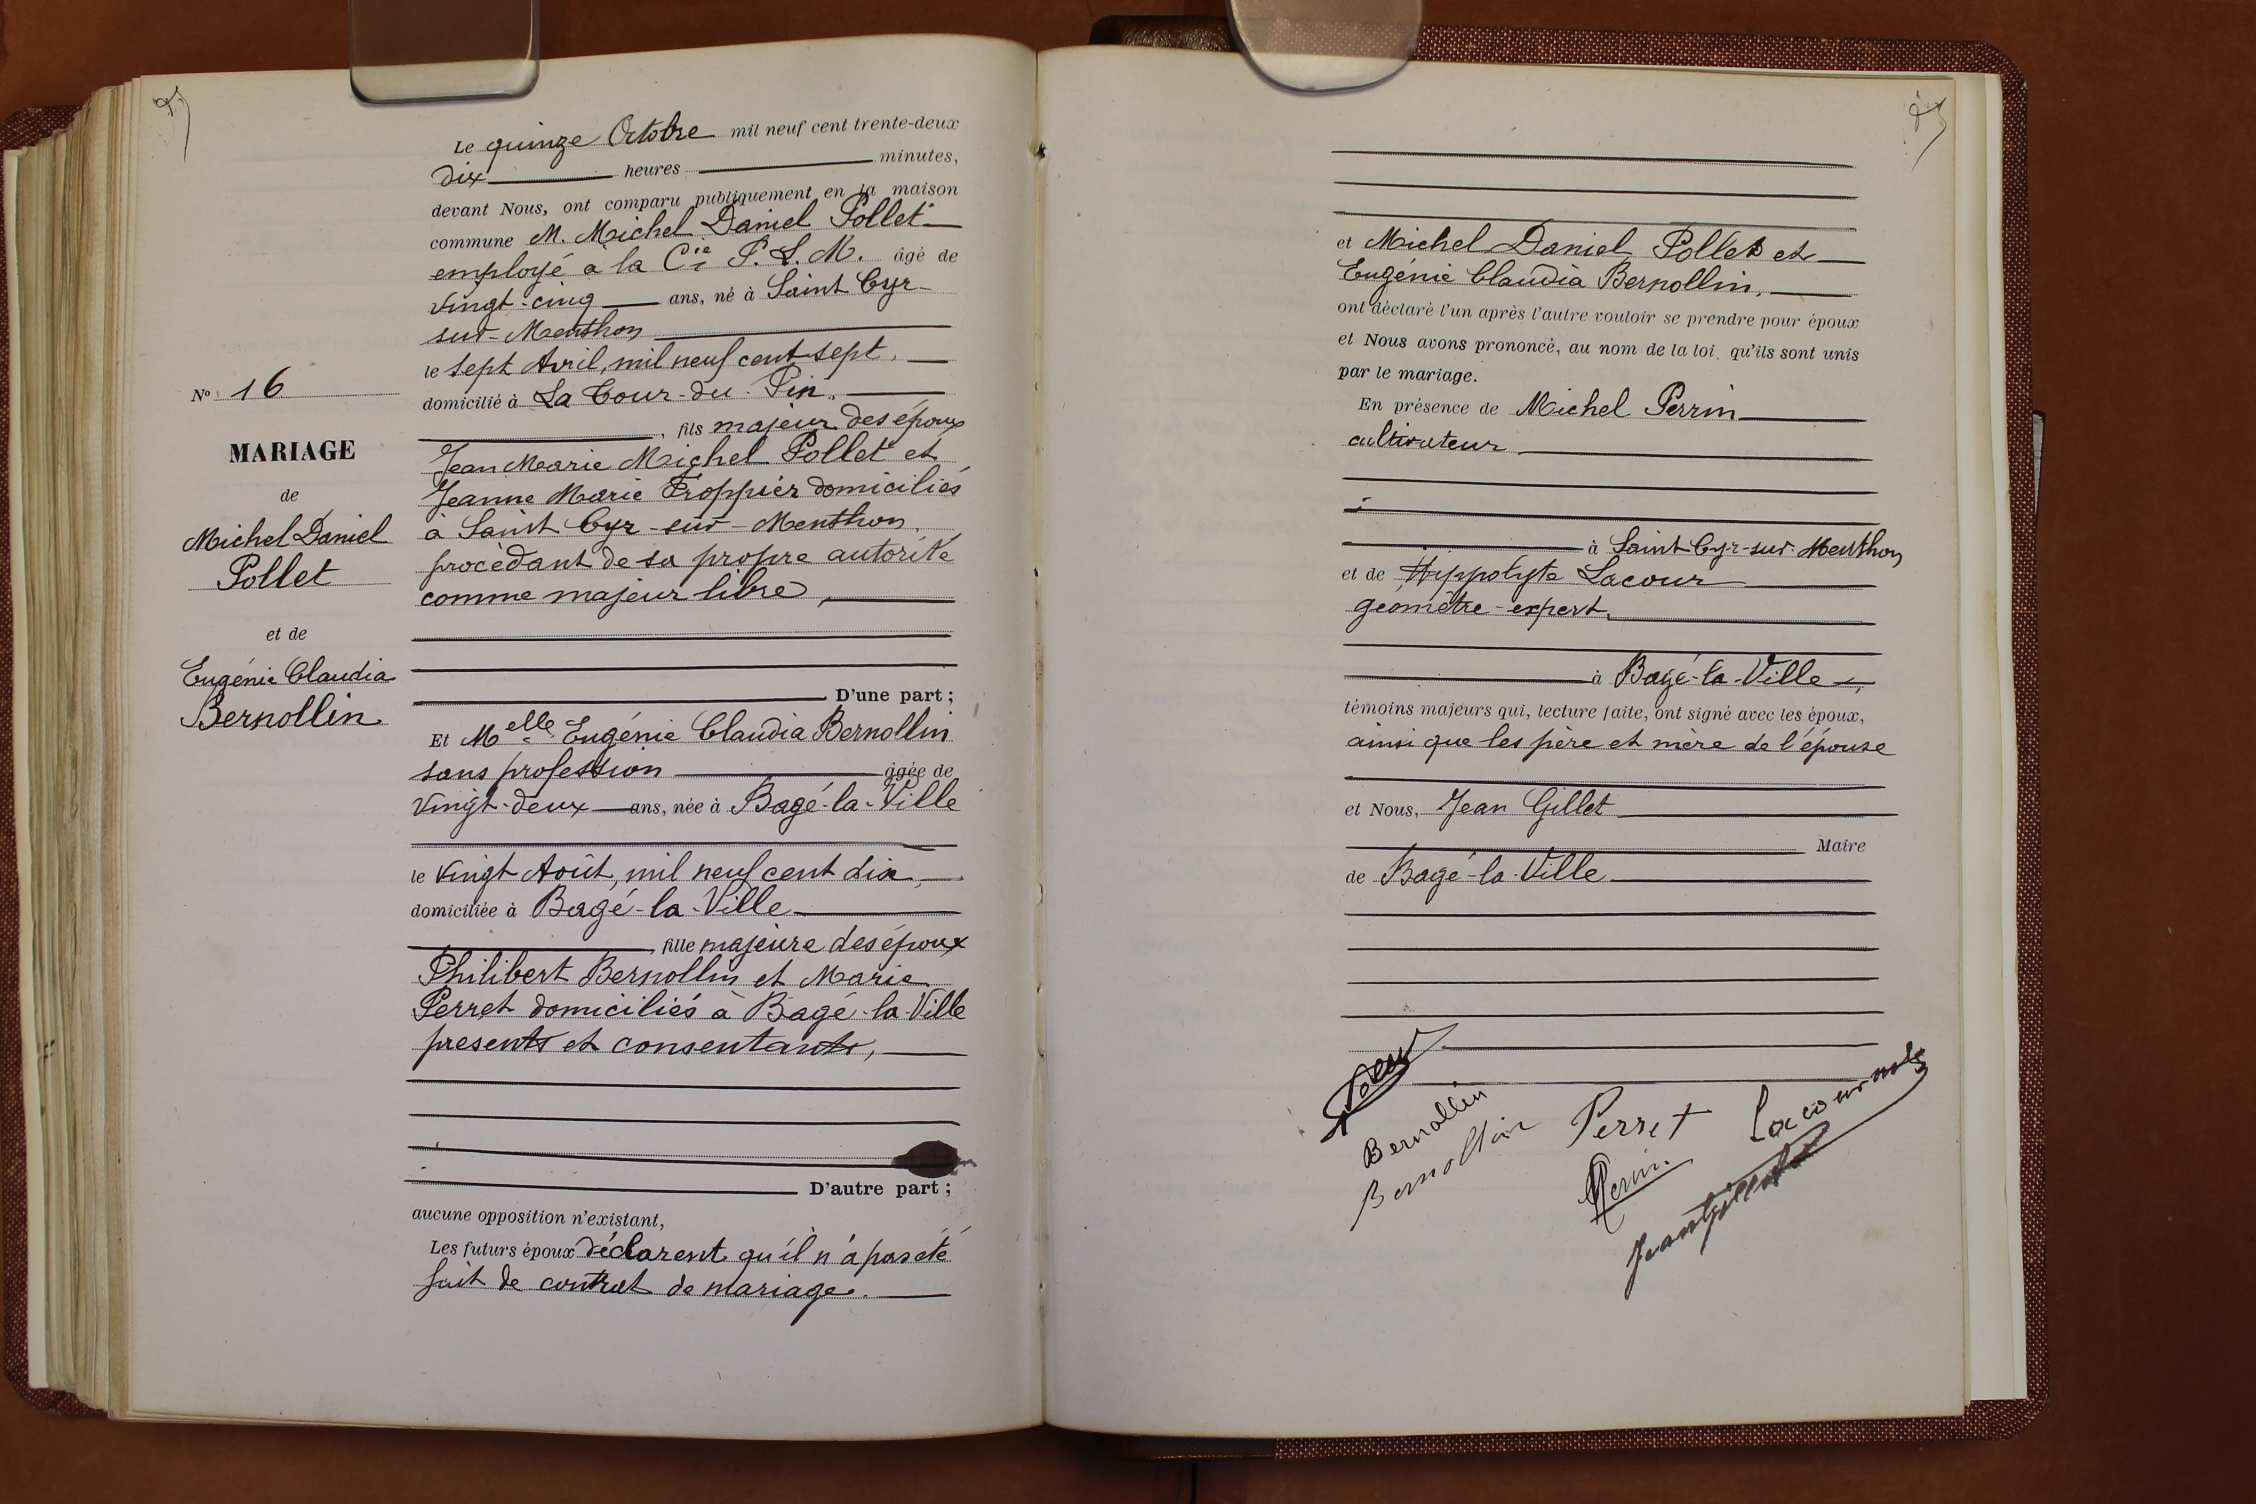 Le quinze Octobre mil neuf cent trente-deux
dix heures minutes,
devant Nous, ont comparu publiquement en la maison
commune M. Michel Daniel Pollet
employé à la Cie P. L. M. âgé de
vingt-cinq ans, né à Saint Cyr-
sur-Menthon
le sept Avril, mil neuf cent sept,
domicilié à La Tour-du-Pin,
, fils majeur des époux
Jean Marie Michel Pollet et
Jeanne Marie Proppier domiciliés
à Saint Cyr-sur-Menthon,
procédant de sa propre autorité
comme majeur libre,
D'une part ;
Et Melle Eugénie Claudia Bernollin
sans profession âgée de
vingt-deux ans, née à Bagé-la-Ville
le vingt Août, mil neuf cent dix,
domiciliée à Bagé-la-Ville
, fille majeure des époux
Philibert Bernollin et Marie
Perret domiciliés à Bagé-la-Ville
présents et consentants,
D'autre part ;
aucune opposition n'existant,
Les futurs époux déclarent qu'il n'a pas été
fait de contrat de mariage.
No 16
MARIAGE
de
Michel Daniel
Pollet
et de
Eugénie Claudia
Bernollin
et Michel Daniel Pollet et
Eugénie Claudia Bernollin,
ont déclaré l'un après l'autre vouloir se prendre pour époux
et Nous avons prononcé, au nom de la loi, qu'ils sont unis
par le mariage.
En présence de Michel Perrin
cultivateur
à Saint Cyr-sur-Menthon
et de Hippolyte Lacour
géomètre-expert,
à Bagé-la-Ville,
témoins majeurs qui, lecture faite, ont signé avec les époux,
ainsi que les père et mère de l'épouse
et Nous, Jean Gillet
Maire
de Bagé-la-Ville
Bernollin
Bernollin
Perret
Perrin
Jean Gillet